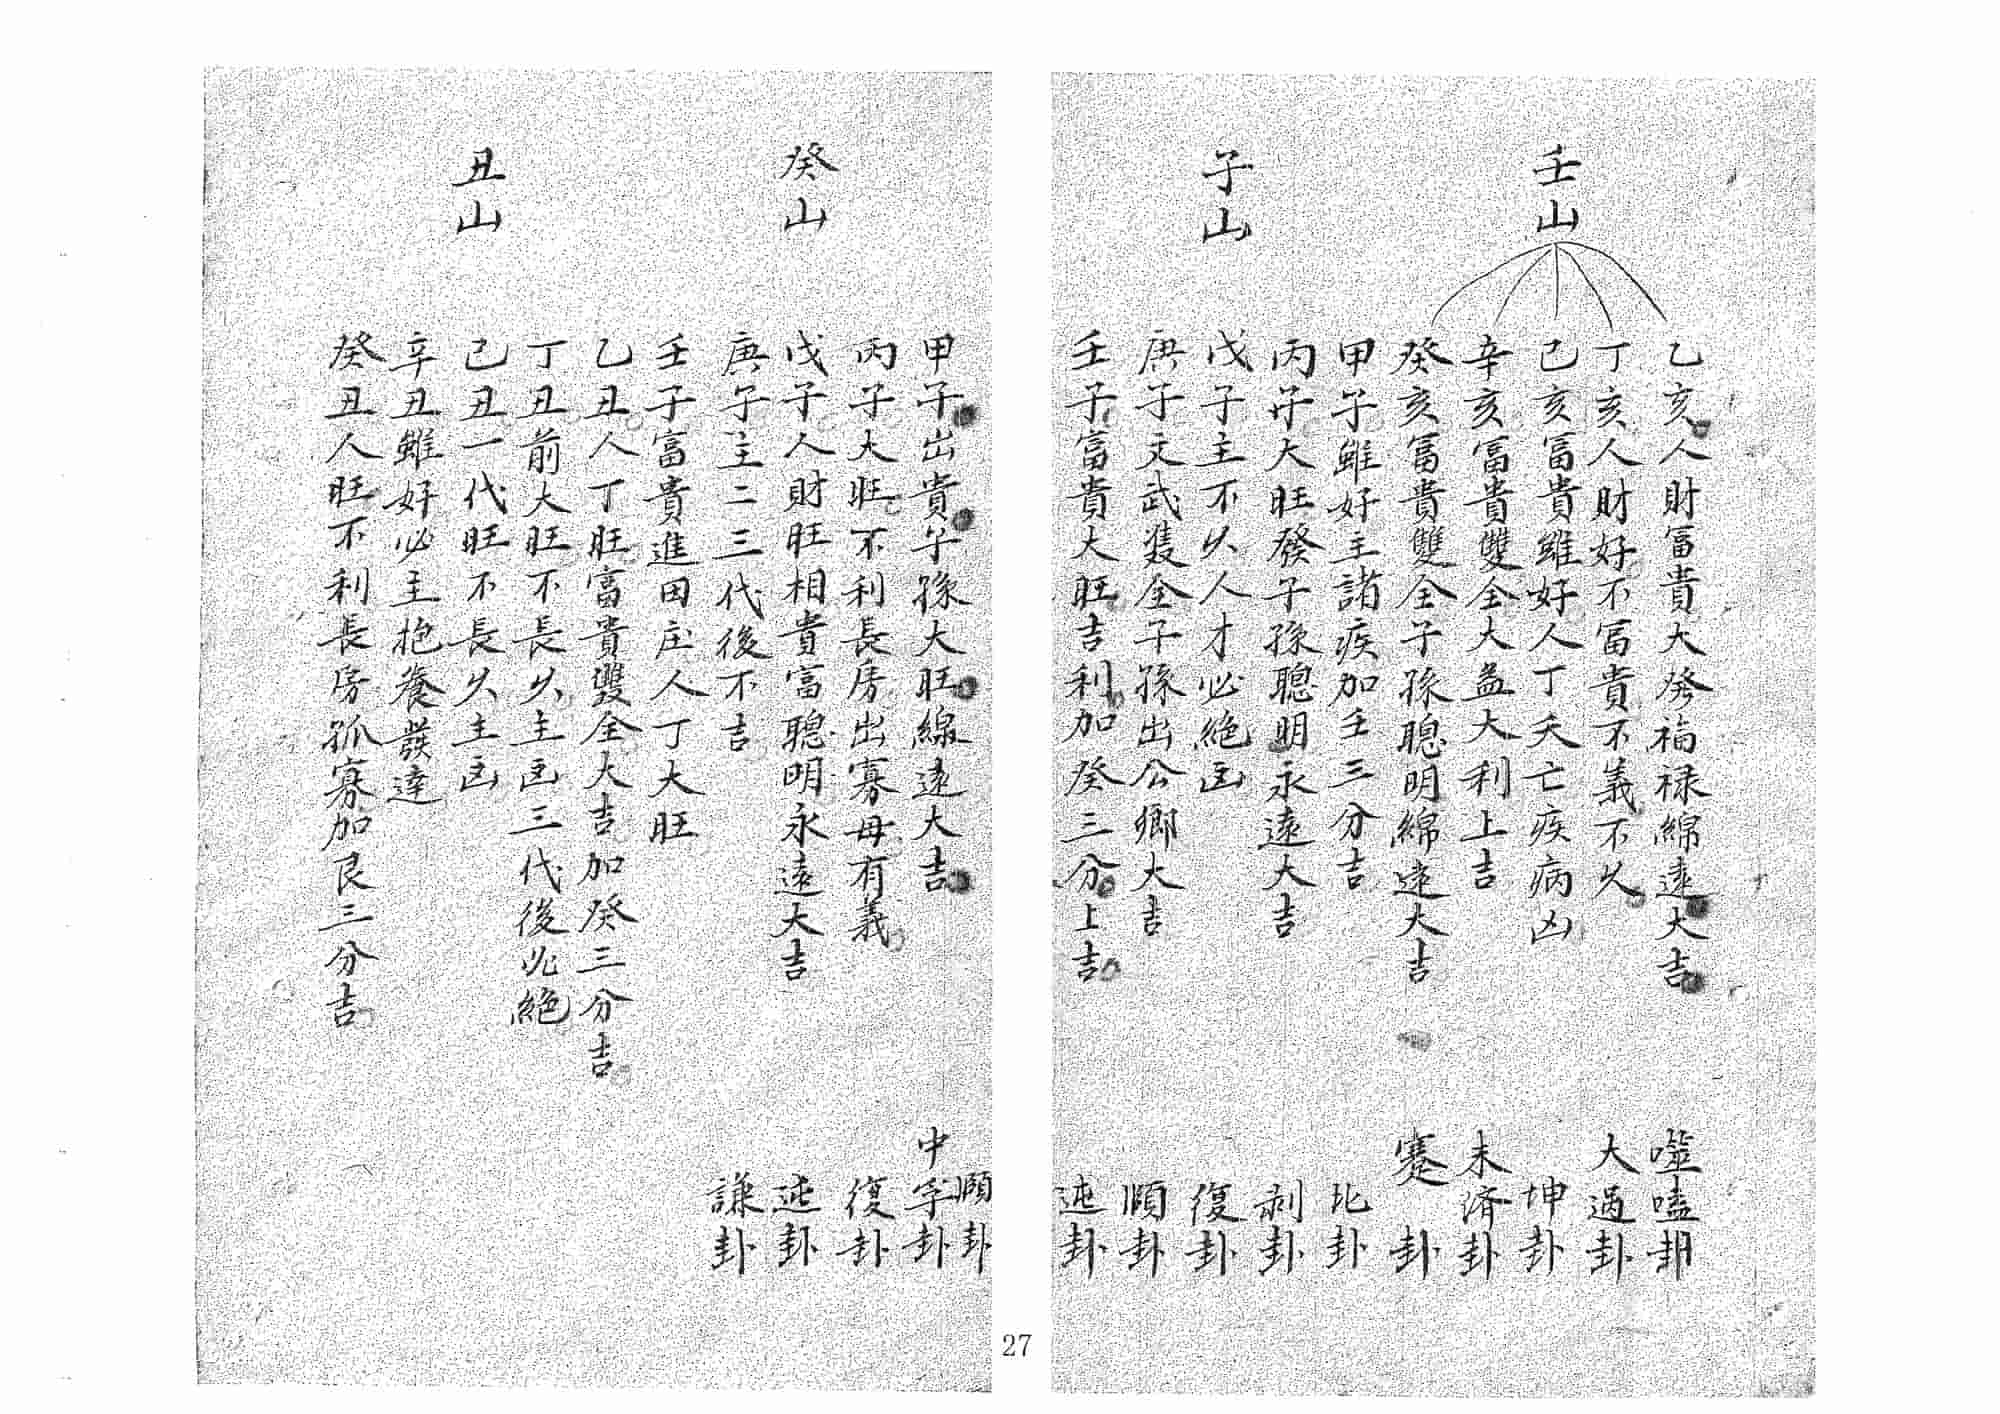 壬山
乙亥人財冨貴大發福禄綿遠大吉
丁亥人財好不冨貴不義不久
己亥冨貴雖好人丁夭亡疾病凶
辛亥冨貴雙全大益大利上吉
癸亥冨貴雙全子孫聰明綿遠大吉
子山
甲子雖好主諸疾加壬三分吉
丙子大旺發子孫聰明永遠大吉
戊子主不久人才必絶凶
庚子文武雙全子孫出公卿大吉
壬子富貴大旺吉利加癸三分上吉
噬嗑卦
大過卦
坤卦
未濟卦
蹇卦
比卦
剥卦
復卦
頤卦
屯卦
癸山
甲子出貴子孫大旺線遠大吉
丙子大旺不利長房出寡母有義
戊子人財旺相貴富聰明永遠大吉
庚子主二三代後不吉
壬子富貴進田庄人丁大旺
丑山
乙丑人丁旺富貴雙全大吉加癸三分吉
丁丑前大旺不長久主凶三代後必絶
己丑一代旺不長久主凶
辛丑雖好必主抱養發達
癸丑人旺不利長房孤寡加艮三分吉
頤卦
中孚卦
復卦
屯卦
謙卦
27